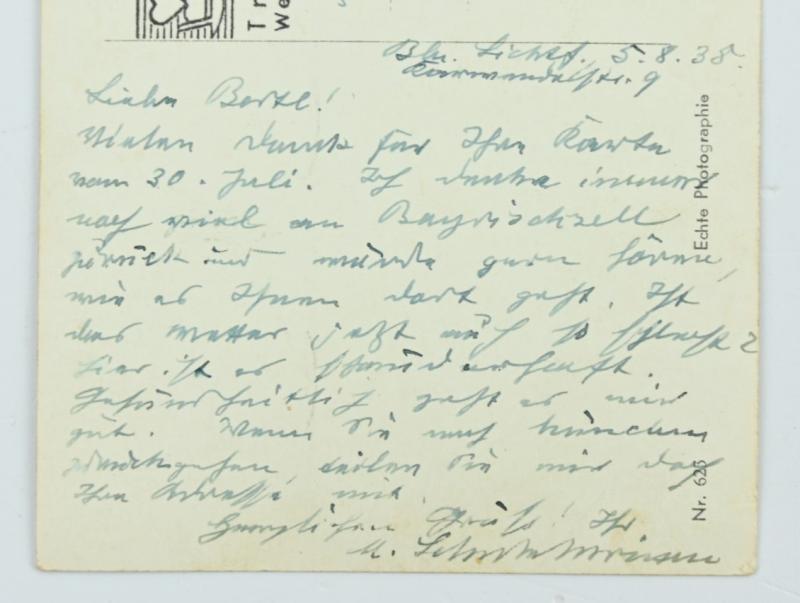 Bln. Lichtf. 5.8.38.
Karwendelstr. 9
Liebe Bertl!
Vielen Dank für Ihre Karte
vom 30. Juli. Ich denke immer
noch viel an Bayrischzell
zurück und würde gern hören,
wie es Ihnen dort geht. Ist
das Wetter jetzt auch so schlecht?
Hier ist es schauderhaft.
Gesundheitlich geht es mir
gut. Wenn Sie nach München
zurückgehen, teilen Sie mir doch
Ihre Adresse mit.
Herzlichen Gruß! Ihr
M.
Echte Photographie
Nr. 625
Tr
We